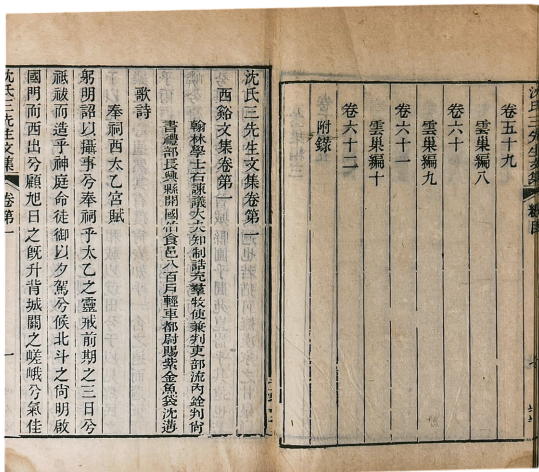 沈氏三先生文集
卷五十九
雲巢編八
卷六十
雲巢編九
卷六十一
雲巢編十
卷六十二
附錄
沈氏三先生文集卷第一
西谿文集卷第一
翰林學士右諫議大夫知制誥充羣牧使兼判吏部流內銓判尙
書禮部長興縣開國伯食邑八百戶輕車都尉賜紫金魚袋沈遘
歌詩
奉祠西太乙宮賦
躬明詔以攝事兮奉祠乎太乙之靈戒前期之三日兮
祇祓而造乎神庭命徒御以夕駕兮候北斗之尙明啟
國門而西出兮顧旭日之旣升背城闕之嵯峨兮氣佳
沈氏三先生文集
卷第一
一